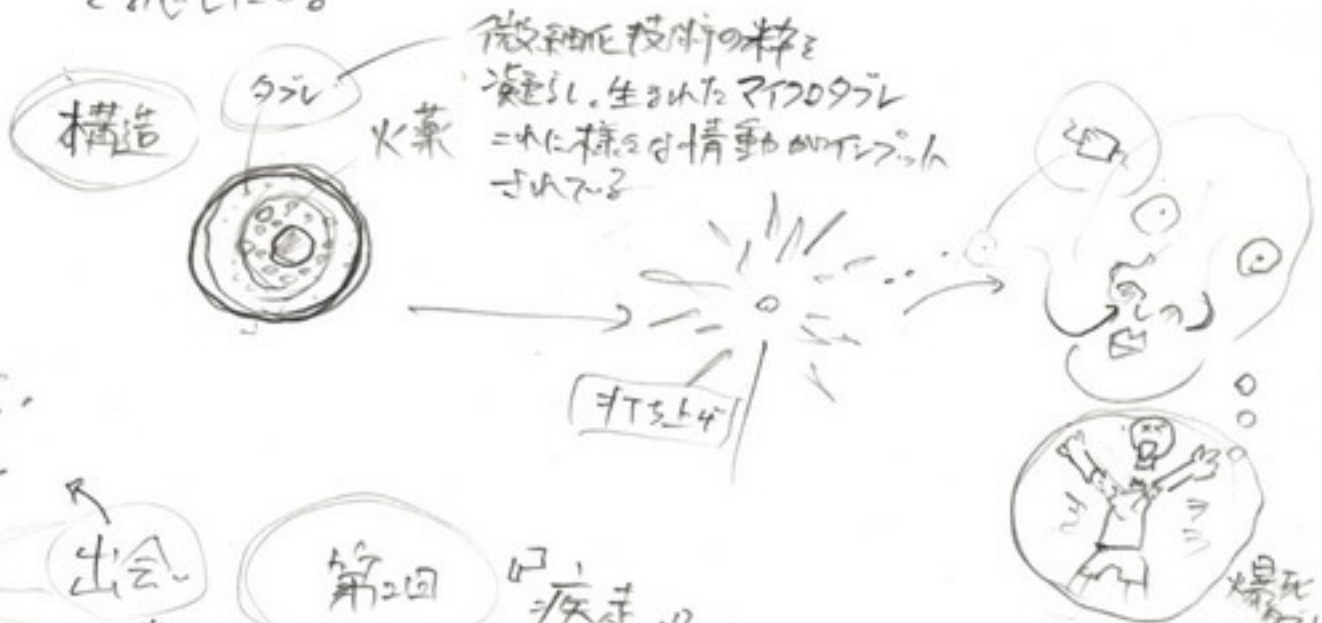 構造
タブレ
火薬
微細化技術の粋を
凝らし、生まれたマイクロタブレ
これに様々な情動がインプット
されている
打ち上げ
出会い
第2回
『疾走』
爆死